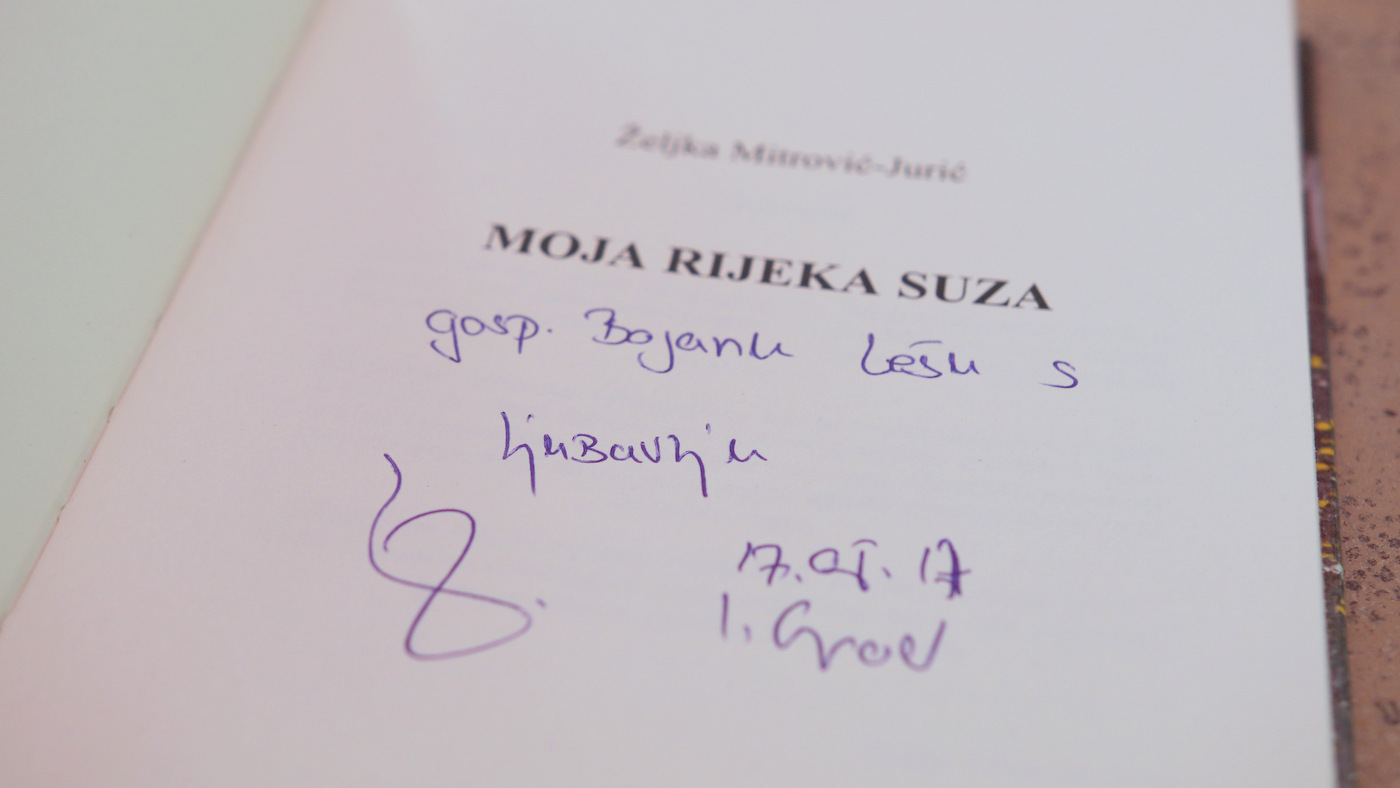 Željka Mitrović-Jurić
MOJA RIJEKA SUZA
gosp. Bojanu Lešu s
ljubavlju
I. Grad